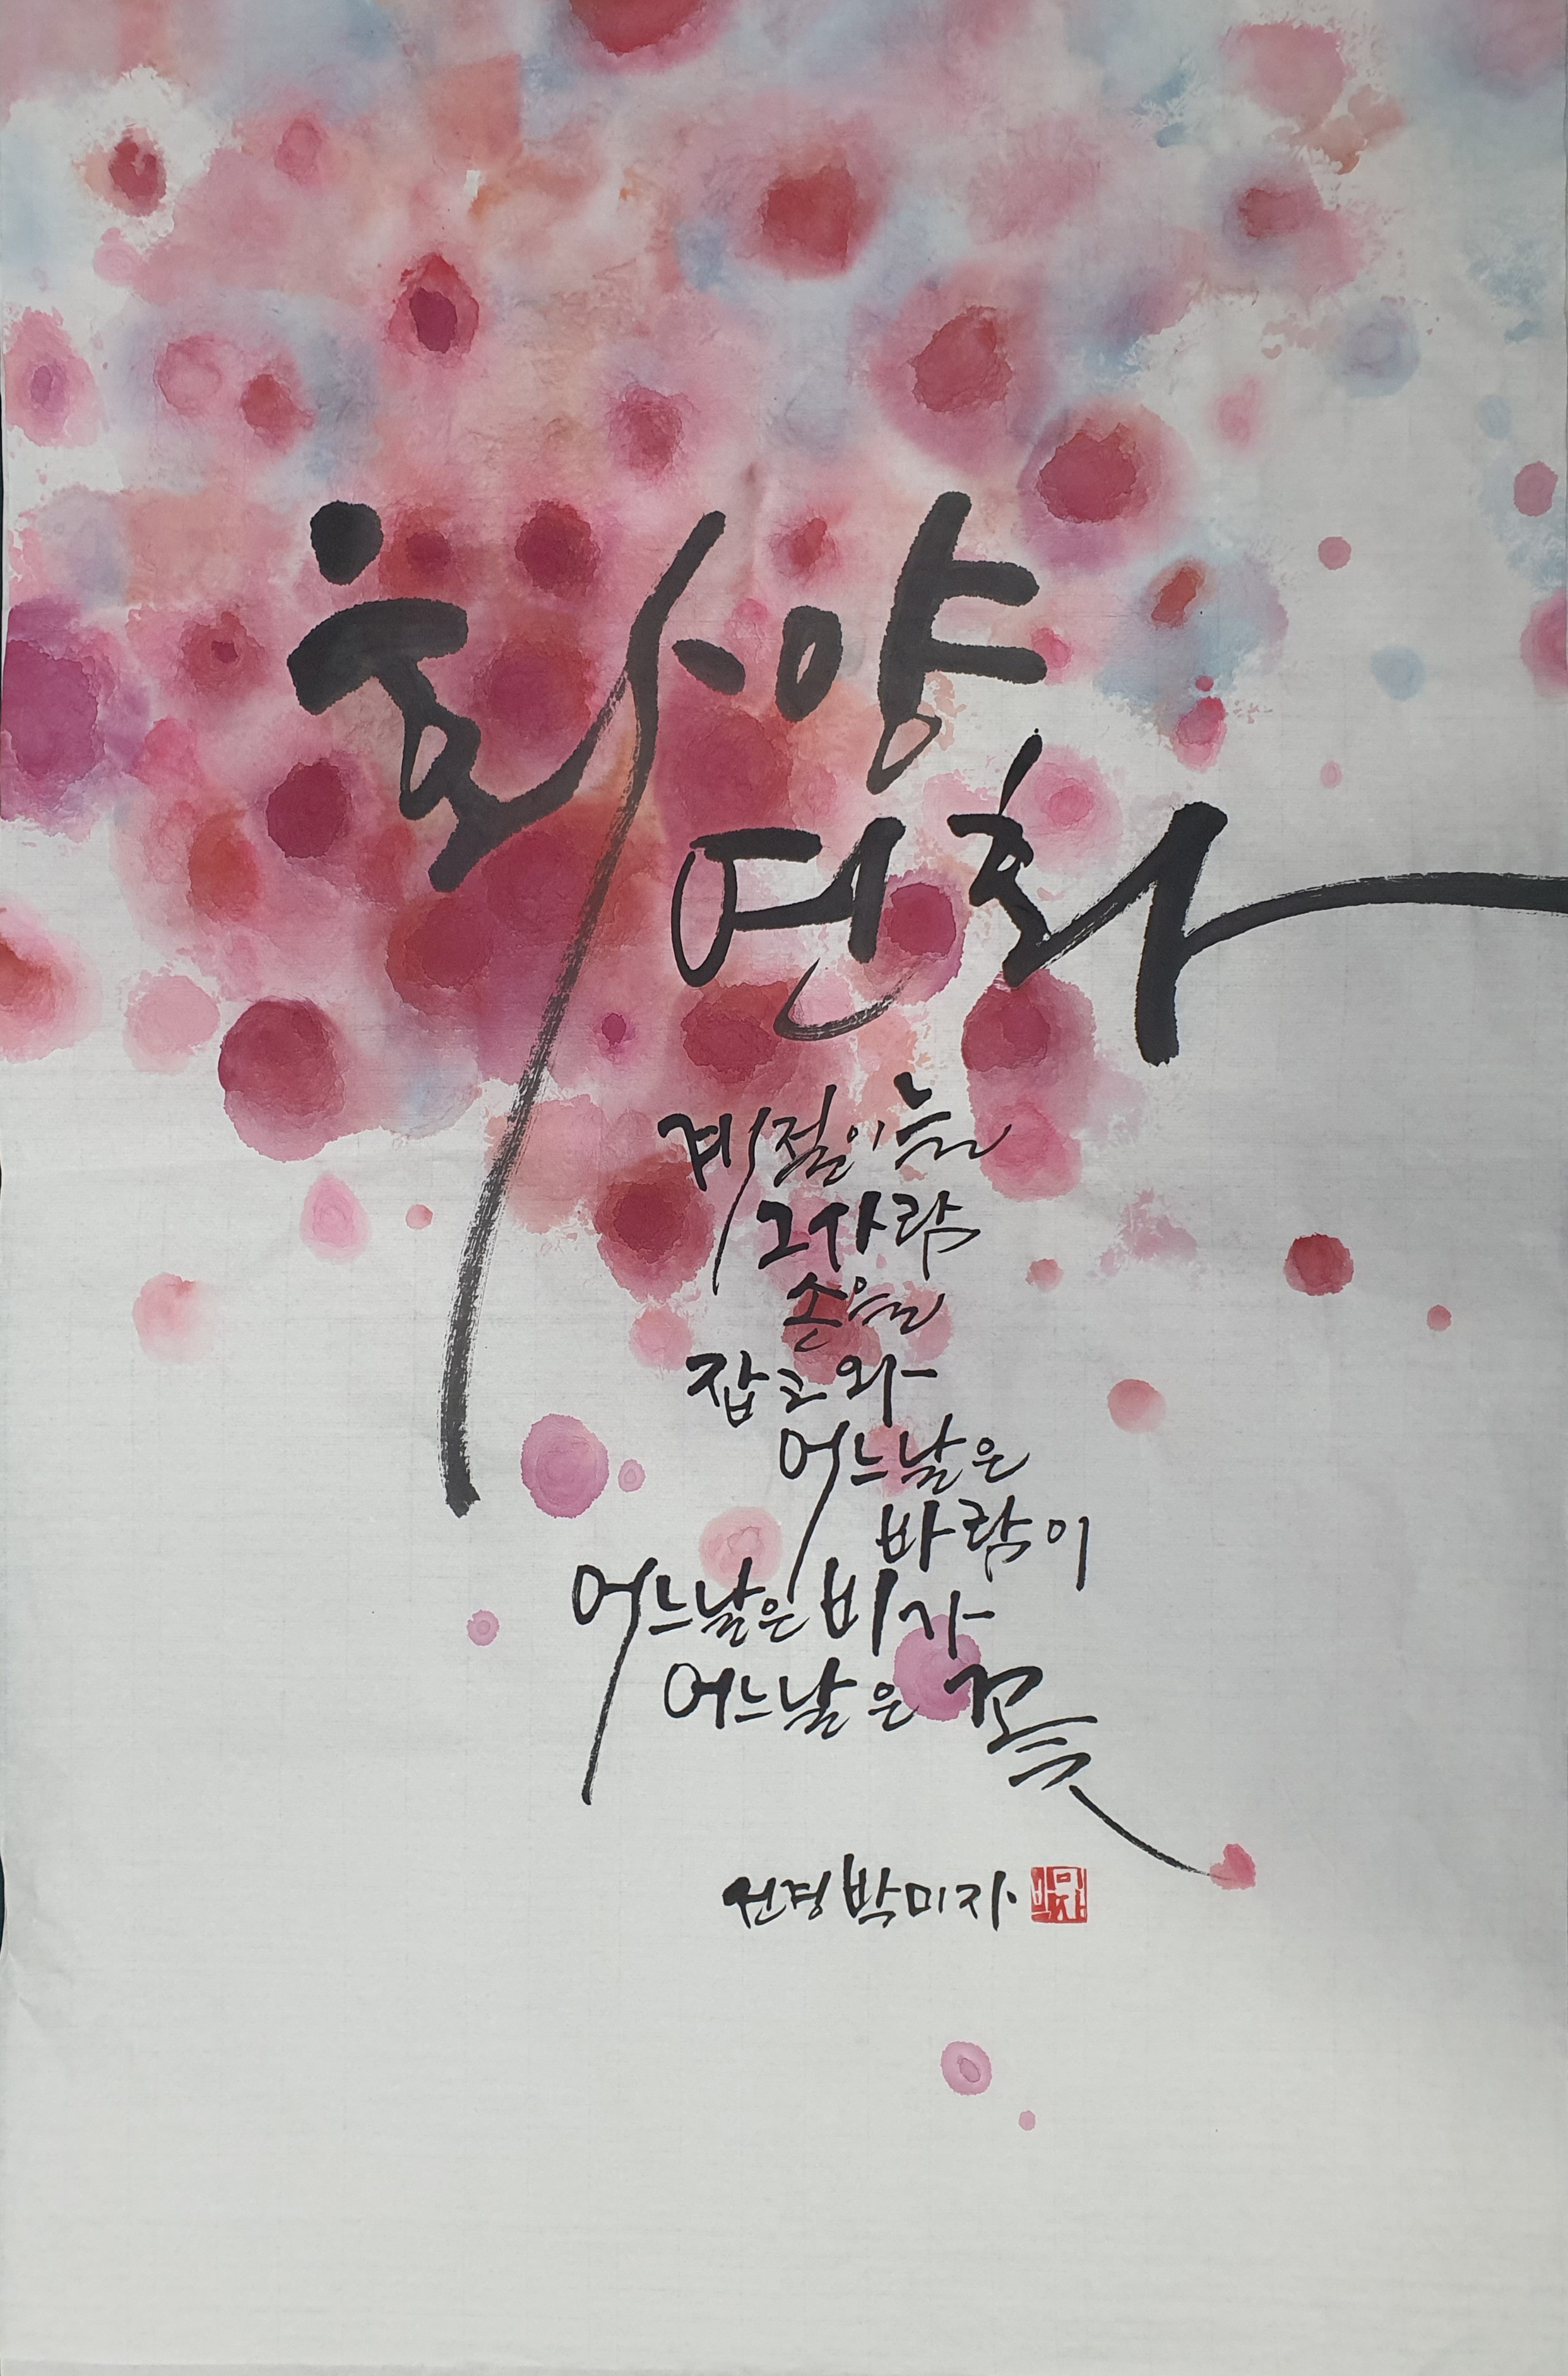 화양
연화
계절이 늘
그 사람
손을
잡고 와
어느 날은
바람이
어느 날은 비가
어느 날은 꽃
박미자